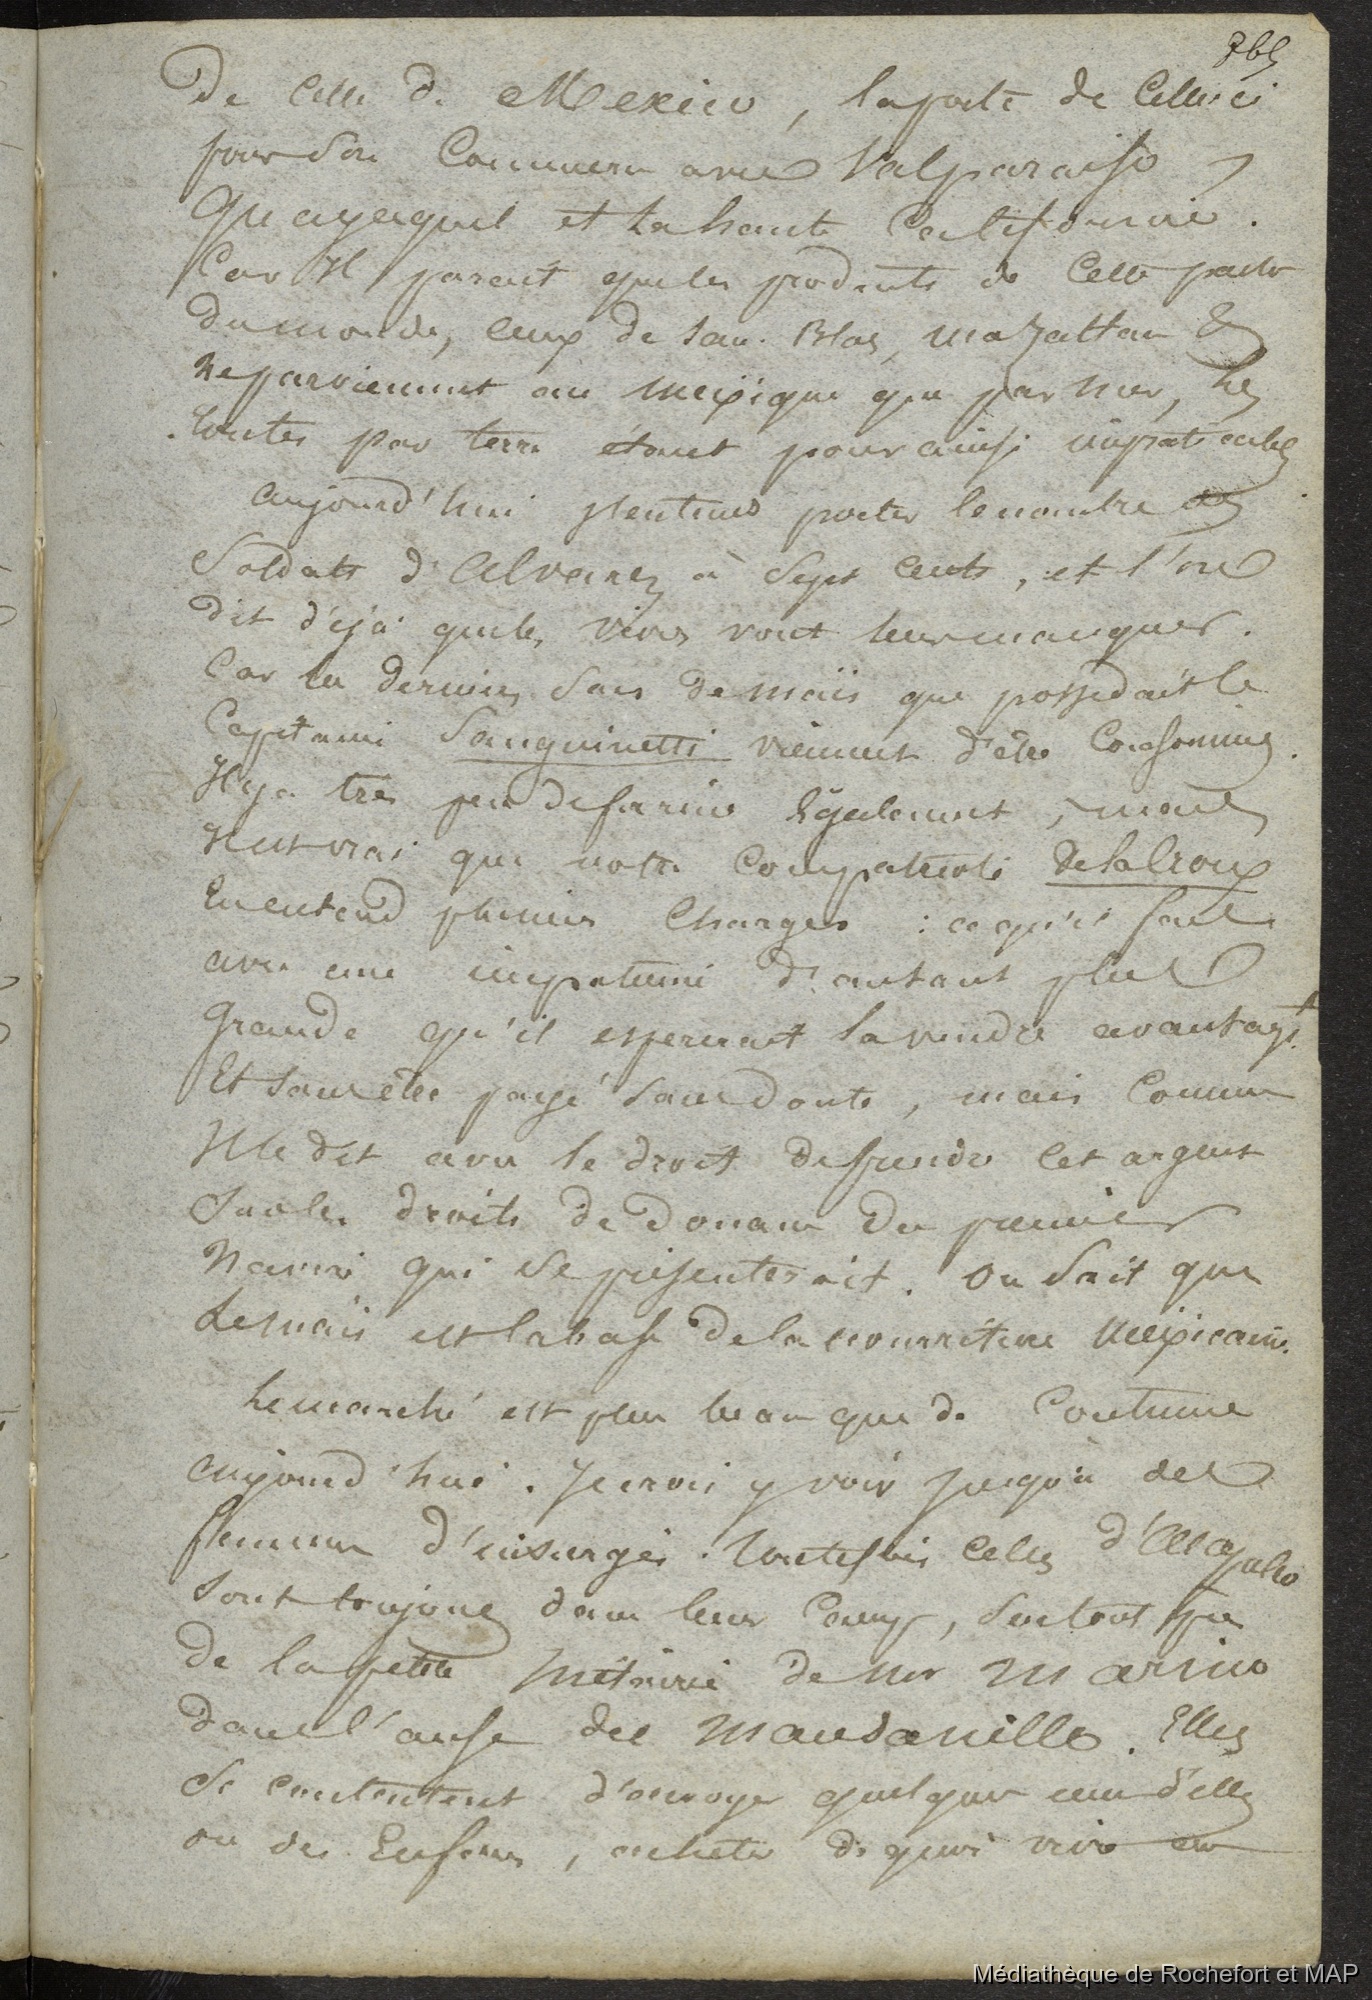 365
De Celle de Mexico, la porte de Celle ci
pour Son Commerce avec Valparaiso,
Guayaquil et La haute Californie.
Car Il parait que les produits de Cette partie
du monde, Ceux de San. Blas, Mazattan &
ne parviennent au Mexique que par Mer, les
routes par terre étant pour ainsi impraticables
aujourd'hui J'entends porter le nombre des
Soldats d'Alvarez à Sept Cents, et l'on
dit déja que les vivres vont leur manquer.
Car les derniers Sacs de Maïs que possedait le
Capitaine Sanguinetti viennent d'être Consommés.
Il y a très peu de farine Egalement, mais
Il est vrai que notre Compatriote Delacroux
En entend plusieurs Charges : ce qu'il fait
avec une impatience d'autant plus
Grande qu'il esperait la vendre avantagt.
Et sans être payé Sans doute, mais Comme
Il le dit avec le droit de prendre Cet argent
Sur les droits de Douane du premier
Navire qui Se présenterait. On Sait que
Le Maïs est la base de la nourriture Mexicaine.
Le marché est plus beau que de Coutume
aujourd'hui. Je crois y voir jusqu'à des
femmes d'insurgés. Toutefois Celles d'Acapulco
Sont toujours dans leur Camp, Surtout
de la petite Métairie de Mr Marino
dans l'anse des Mansanillo. Elles
Se contentent d'envoyer quelques unes d'elles
ou des Enfans, acheter de quoi vivre en
Médiathèque de Rochefort et MAP